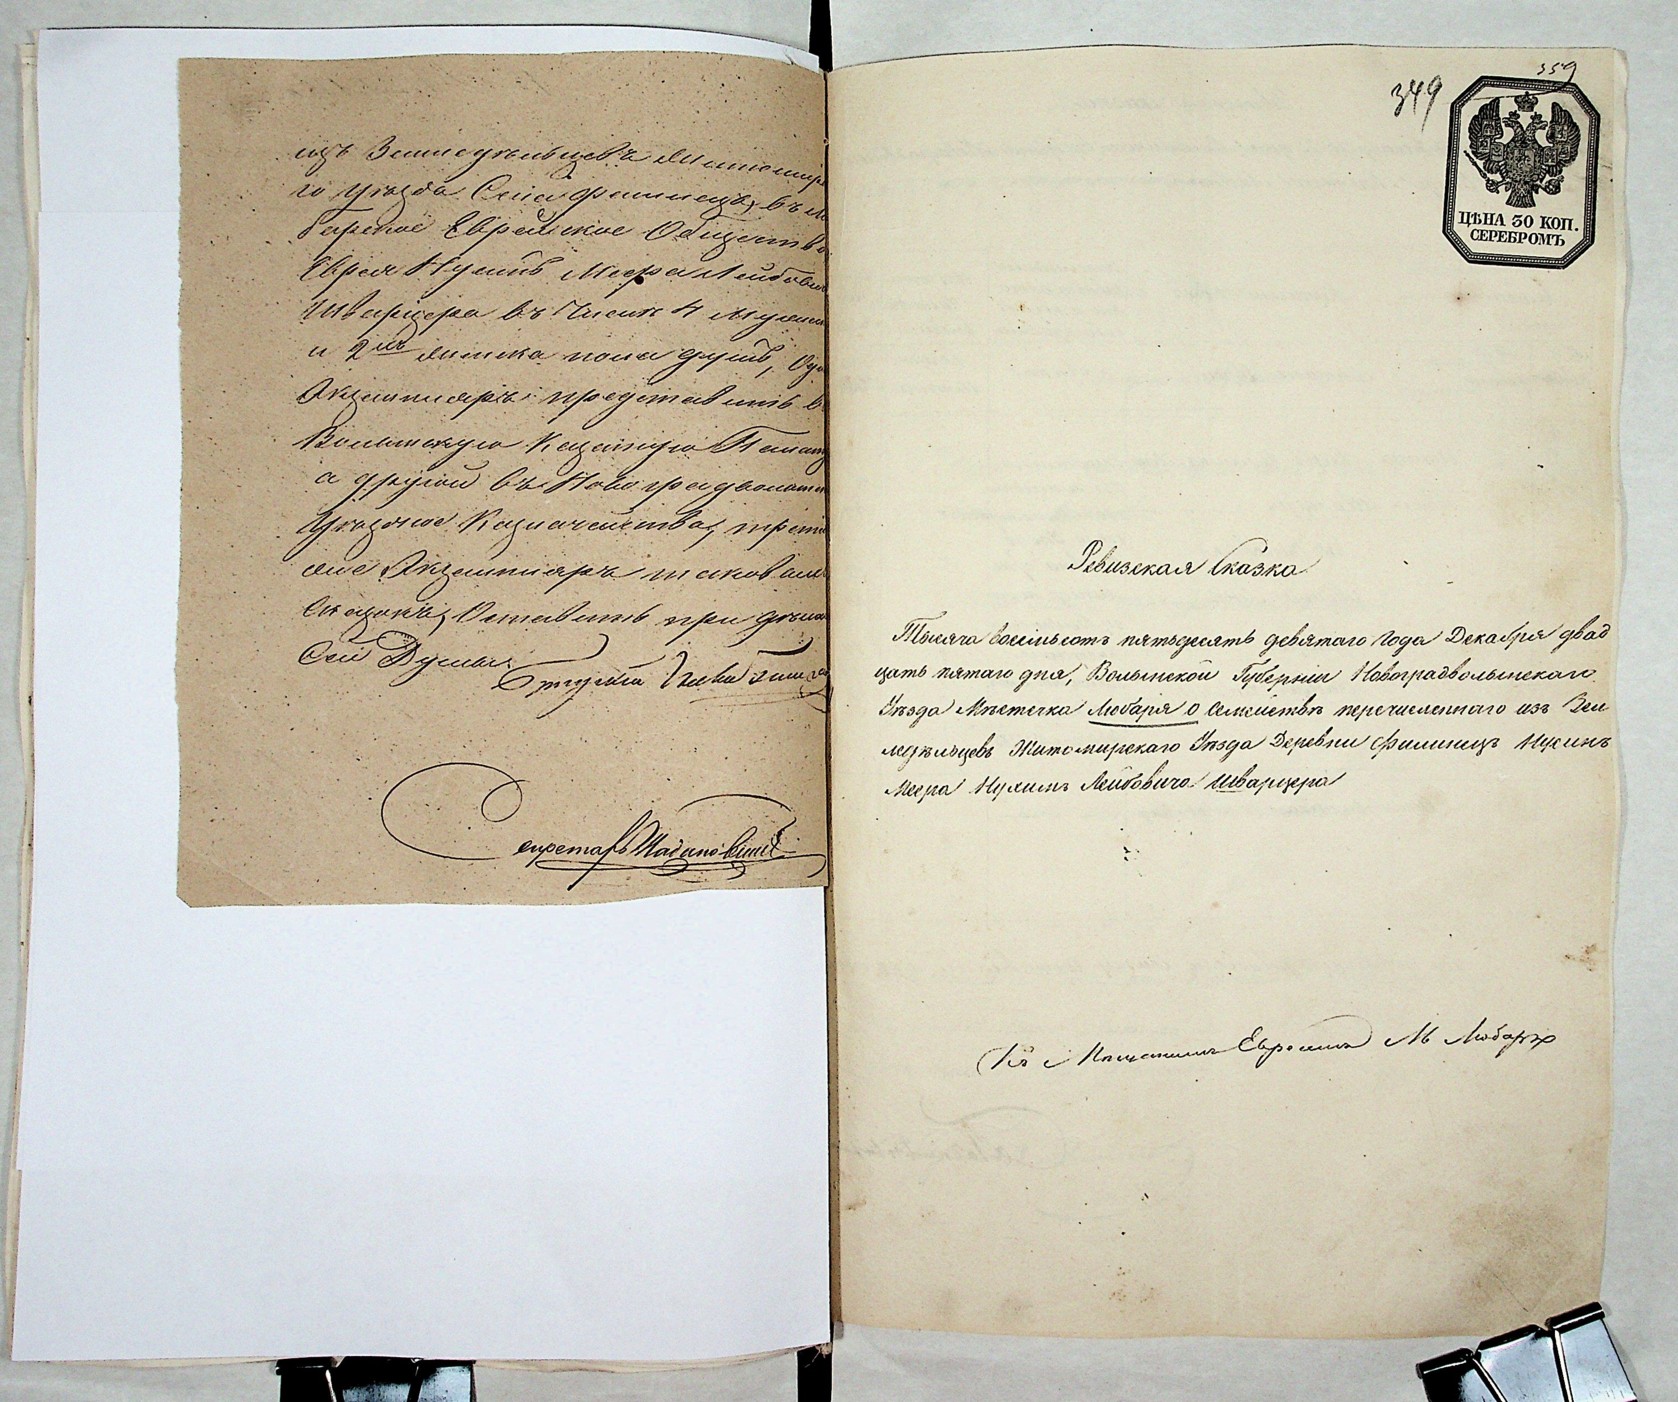 изъ Земледѣльцевъ Житомирска
го уѣзда Села Филинецъ, въ Лю
барское Еврейское Общество
Еврея Нухимъ Меера Лейбовича
Шварцера въ числѣ 4 мужеска
и 2хъ женска пола душъ, Одинъ
Экземпляръ представить въ
Волынскую Казенную Палату
а другой въ Новоградволынское
Уѣздное Казначейство, трети
же Экземпляръ таковыхъ
Сказокъ, Оставить при дѣлахъ
Сей Думы.
Секретарь
349
359
ЦѢНА 30 КОП.
СЕРЕБРОМЪ
Ревизская Сказка
Тысяча восемьсотъ пятьдесятъ девятаго года Декабря двад
цать пятаго дня, Волынской Губерніи Новоградволынскаго
Уѣзда Мѣстечка Любаря о семействѣ перечисленнаго изъ Зем
ледѣльцевъ Житомирскаго Уѣзда Деревни Филинецъ Нухимъ
Меера Нухимъ Лейбовича Шварцера
Къ Мѣщанамъ Евреямъ М Любаръ